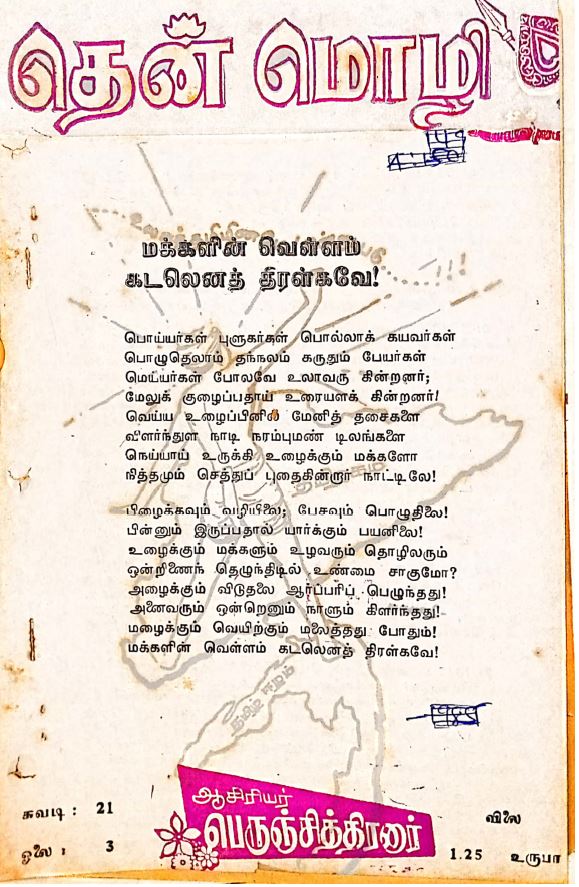 தென் மொழி
மக்களின் வெள்ளம்
கடலெனத் திரள்கவே!
பொய்யர்கள் புளுகர்கள் பொல்லாக் கயவர்கள்
பொழுதெலாம் தந்நலம் கருதும் பேயர்கள்
மெய்யர்கள் போலவே உலாவரு கின்றனர்;
மேலுக் குழைப்பதாய் உரையளக் கின்றனர்!
வெய்ய உழைப்பினில் மேனித் தசைகளை
விளர்ந்துள நாடி நரம்புமண் டிலங்களை
நெய்யாய் உருக்கி உழைக்கும் மக்களோ
நித்தமும் செத்துப் புதைகின்றார் நாட்டிலே!
பிழைக்கவும் வழியிலை; பேசவும் பொழுதிலை!
பின்னும் இருப்பதால் யார்க்கும் பயனிலை!
உழைக்கும் மக்களும் உழவரும் தொழிலரும்
ஒன்றிணைந் தெழுந்திடில் உண்மை சாகுமோ?
அழைக்கும் விடுதலை ஆர்ப்பரிப் பெழுந்தது!
அனைவரும் ஒன்றெனும் நாளும் கிளர்ந்தது!
மழைக்கும் வெயிற்கும் மலைத்தது போதும்!
மக்களின் வெள்ளம் கடலெனத் திரள்கவே!
தமிழகம்
தமிழ் ஈழம்
சுவடி : 21
ஓலை : 3
ஆசிரியர்
பெருஞ்சித்திரனார்
விலை
1.25 உருபா